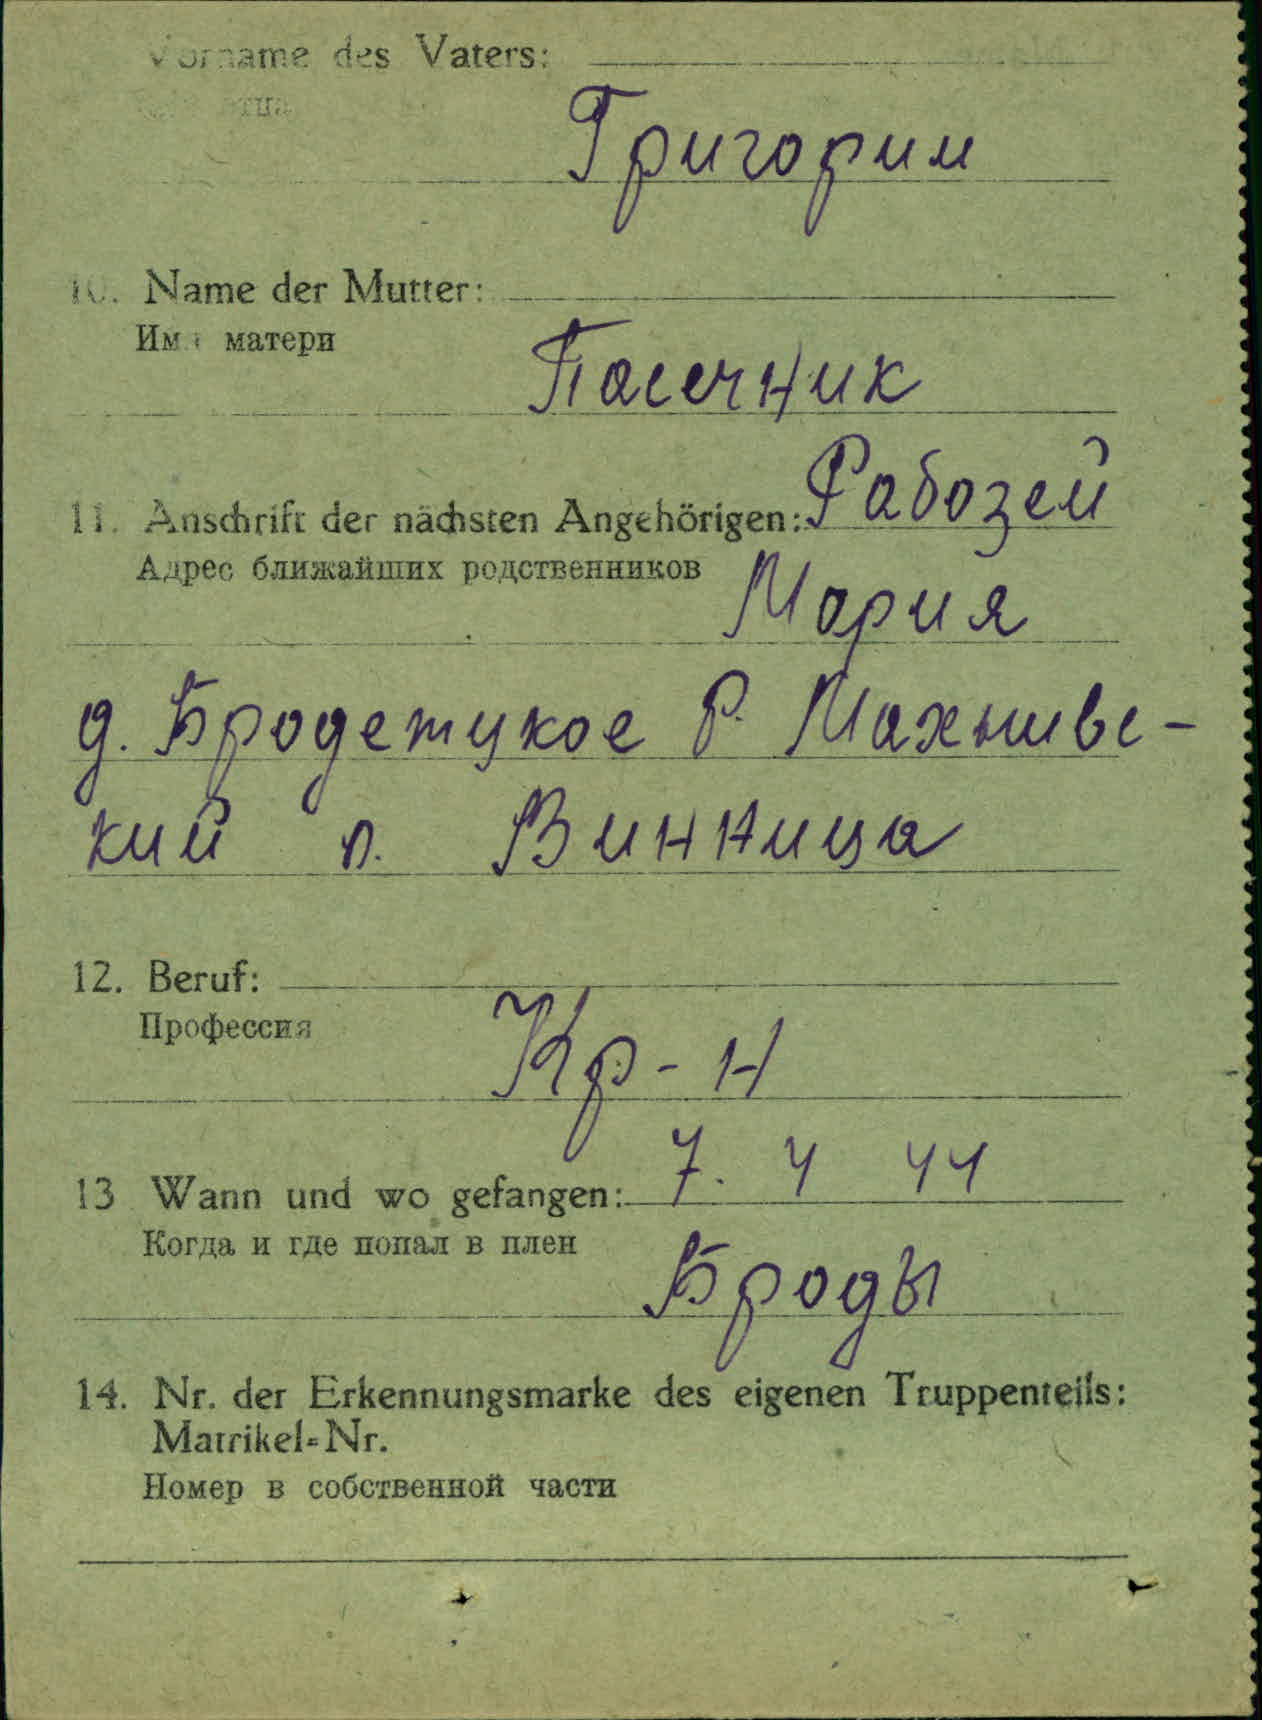 Vorname des Vaters:
отца
Григории
10. Name der Mutter:
Имя матери
Пасечник
11. Anschrift der nächsten Angehörigen: Рабозей
Адрес ближайших родственников
Мария
д. Бродетцкое Р. Махнивс-
кий п. Винница
12. Beruf:
Профессия
Кр-н
13 Wann und wo gefangen: 7. 4 44
Когда и где попал в плен
Броды
14. Nr. der Erkennungsmarke des eigenen Truppenteils:
Matrikel-Nr.
Номер в собственной части